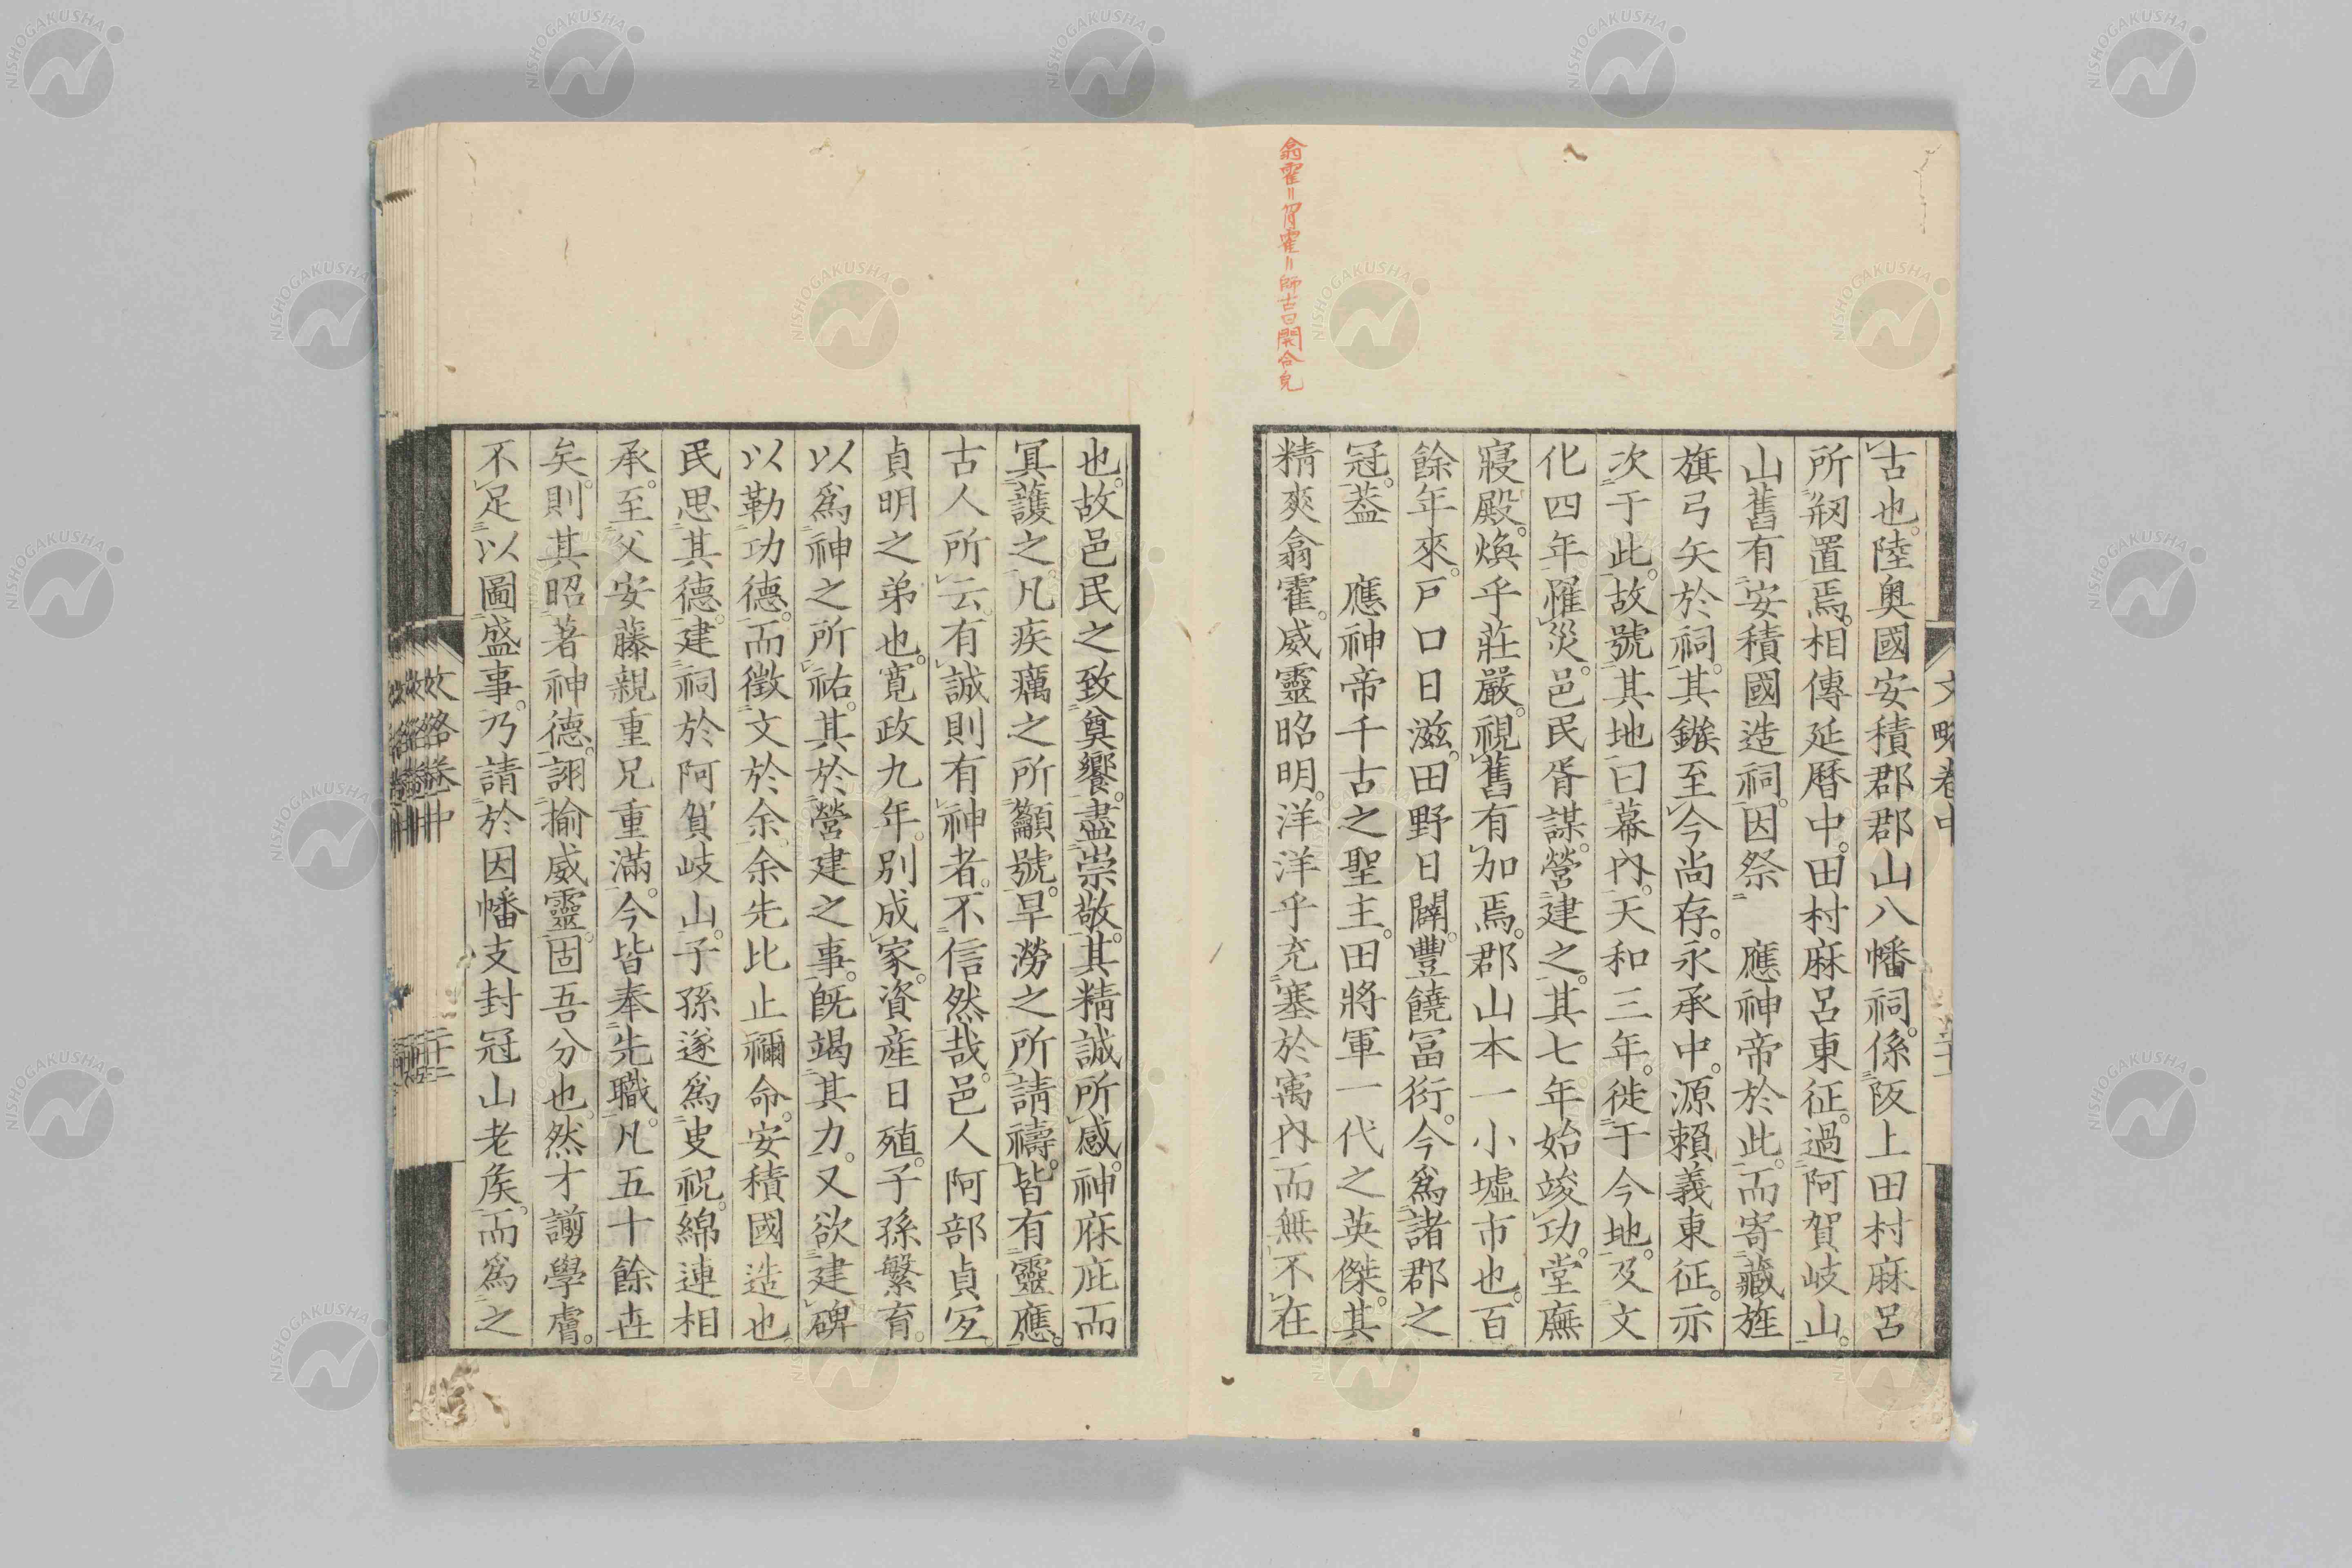 翕霍〃胷霍〃師古曰開合皃
文略卷中
古也。陸奥國安積郡郡山八幡祠。係阪上田村麻呂
所剏置焉。相傳延暦中。田村麻呂東征。過阿賀岐山。
山舊有安積國造祠。因祭　應神帝於此。而寄藏旌
旗弓矢於祠。其鏃至今尚存。永承中。源賴義東征。示
次于此。故號其地曰幕內。天和三年。徙于今地。及文
化四年。罹災。邑民胥謀。營建之。其七年始竣功。堂廡
寢殿。煥乎莊嚴。視舊有加焉。郡山本一小墟市也。百
餘年來。戸口日滋。田野日闢。豐饒冨衍。今爲諸郡之
冠。葢　應神帝千古之聖主。田將軍一代之英傑。其
精爽翕霍。威靈昭明。洋洋乎充塞於寓內而無不在
也。故邑民之致奠饗。盡崇敬。其精誠所感。神庥庇而
冥護之。凡疾癘之所籲號。旱澇之所請禱。皆有靈應。
古人所云。有誠則有神者。不信然哉。邑人阿部貞㝎。
貞明之弟也。寛政九年。別成家。資産日殖。子孫繁育。
以爲神之所祐。其於營建之事。既竭其力。又欲建碑
以勒功德。而徵文於余。余先比止禰命。安積國造也。
民思其德。建祠於阿賀岐山。子孫遂爲史祝。綿連相
承。至父安藤親重兄重滿。今皆奉先職。凡五十餘世
矣。則其昭著神德。詡揄威靈。固吾分也。然才謭學膚。
不足以圖盛事。乃請於因幡支封冠山老矦。而爲之
文略卷中